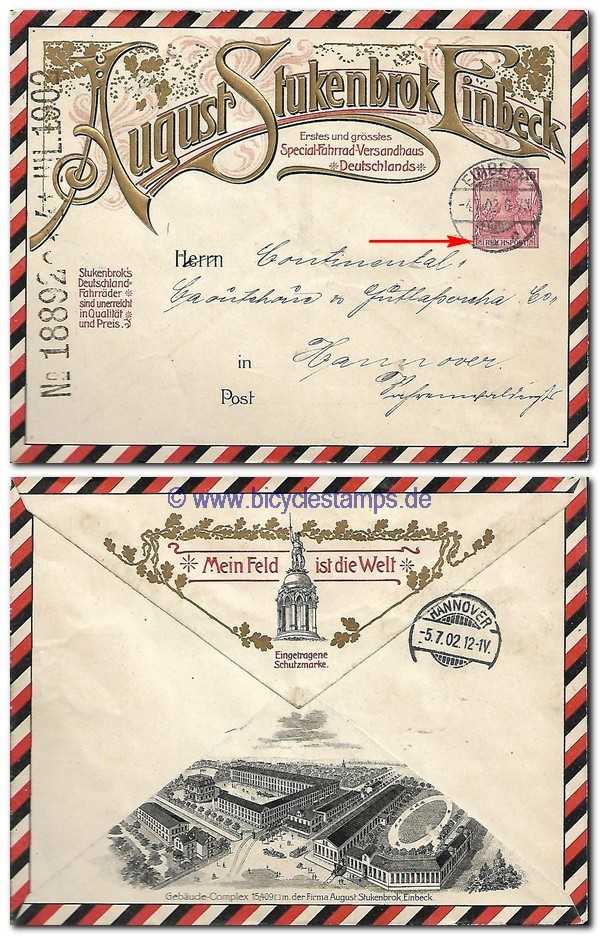 August Stukenbrok Einbeck
Erstes und grösstes
Special-Fahrrad-Versandhaus
Deutschlands
EINBECK
REICHSPOST
Herrn Continental
Caoutchouc & Guttapercha Co.
in Hannover.
Post
Stukenbrok's
Deutschland-
Fahrräder
sind unerreicht
in Qualität
und Preis.
No 18892
JUL. 1902
© www.bicyclestamps.de
Mein Feld ist die Welt
Eingetragene
Schutzmarke.
HANNOVER
-5.7.02.12-1V.
Gebäude-Complex 15409 □ m. der Firma August Stukenbrok Einbeck.